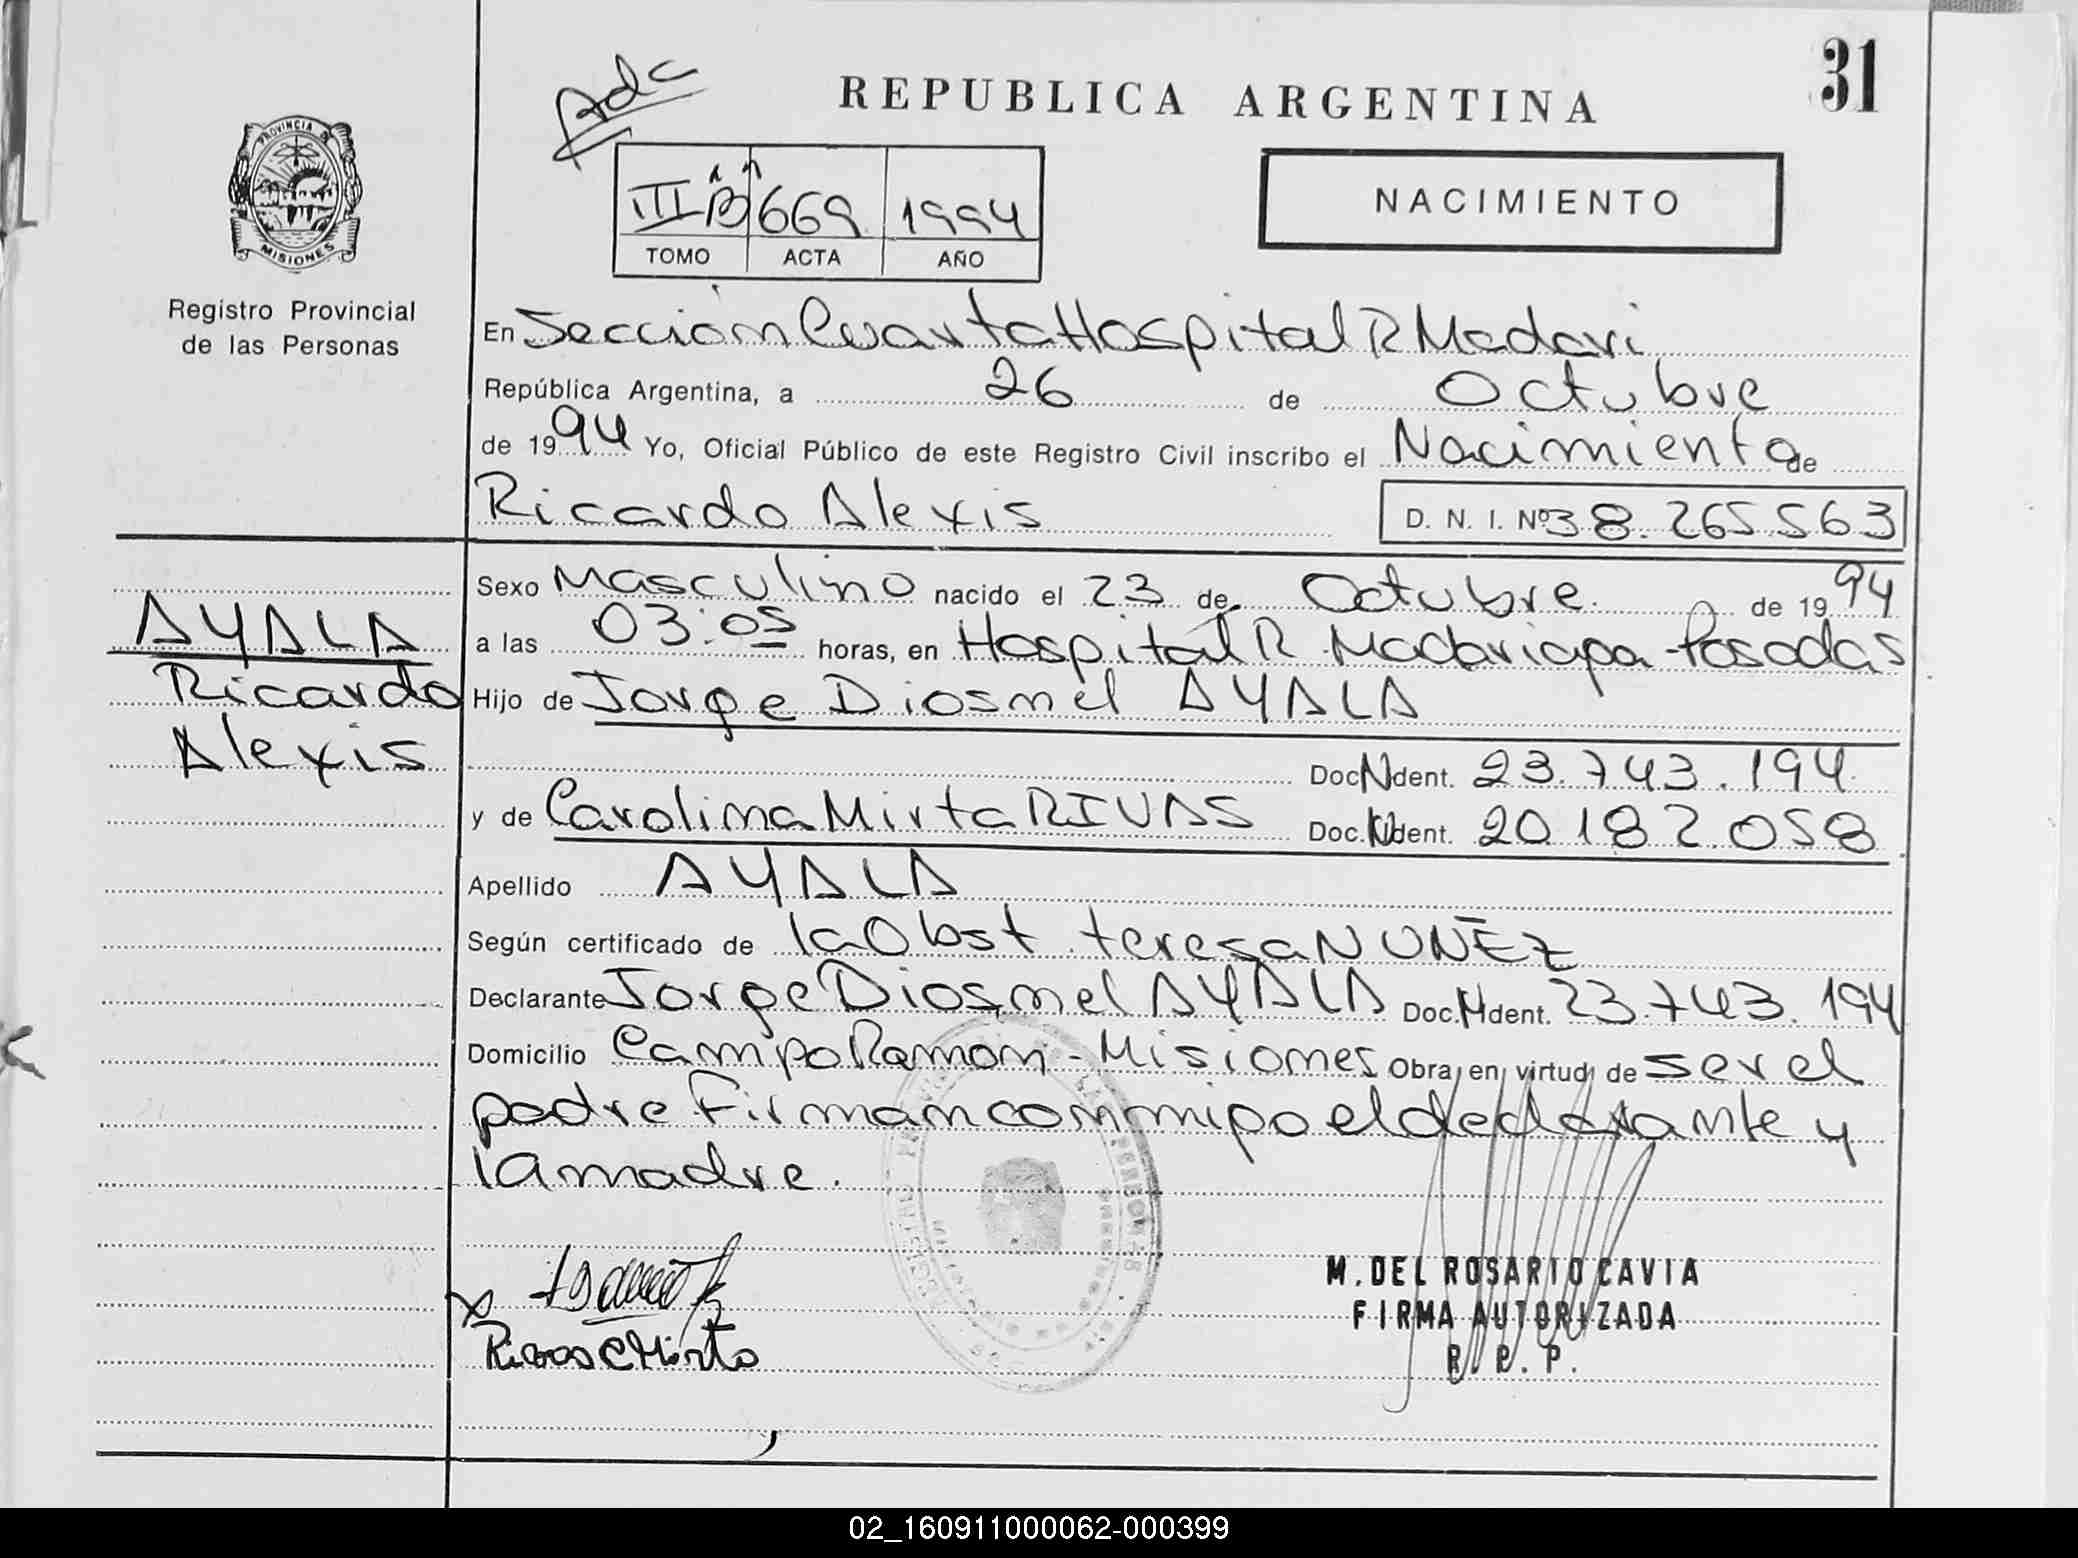 31
Adc
REPUBLICA ARGENTINA
PROVINCIA D
MISIONES
Registro Provincial
de las Personas
III "B" 669 1994
TOMO ACTA AÑO
NACIMIENTO
En Sección Cuarta Hospital R Madari
República Argentina, a 26 de Octubre
de 1994 Yo, Oficial Público de este Registro Civil inscribo el Nacimiento de
Ricardo Alexis D. N. I. Nº 38.265.563
AYALA
Ricardo
Alexis
Sexo Masculino nacido el 23 de Octubre de 1994
a las 03:05 horas, en Hospital R. Madariaga - Posadas
Hijo de Jorge Diosnel AYALA
Doc. N Ident. 23.743.194
y de Carolina Mirta RIVAS Doc. N Ident. 20.182.058
Apellido AYALA
Según certificado de la Obst. teresa NUÑEZ
Declarante Jorge Diosnel AYALA Doc. N Ident. 23.743.194
Domicilio Campo Ramon - Misiones Obra en virtud de ser el
padre Firman conmigo el declarante y
la madre.
Rivas C Mirta
M. DEL ROSARIO CAVIA
FIRMA AUTORIZADA
R. P. P.
02_160911000062-000399